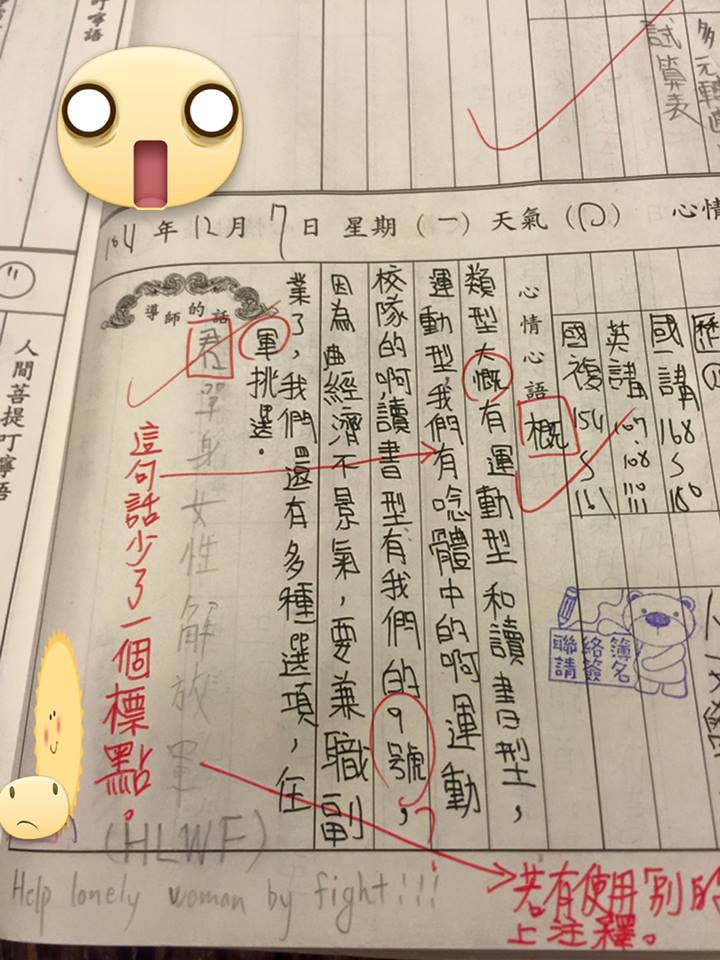 多元轉
試算表
叮嚀語
104 年 12月 7日 星期（一）天氣（ ）心情
歷
國講 168
英講 107.108 110 111
國複 154 161
心情心語
概
類型大慨有運動型 和讀書型，
運動型我們有唸體中的啊運動
校隊的啊讀書型有我們的9號，
因為曲經濟不景氣，要兼職副
業了，我們還有多種選項，任
軍挑選。
導師的話
君
單身女性解放軍
(HLWF)
Help lonely woman by fight!!!
這句話少了一個標點。
若有使用「別的
上注釋。
聯絡簿
請簽名
人間菩提叮嚀語